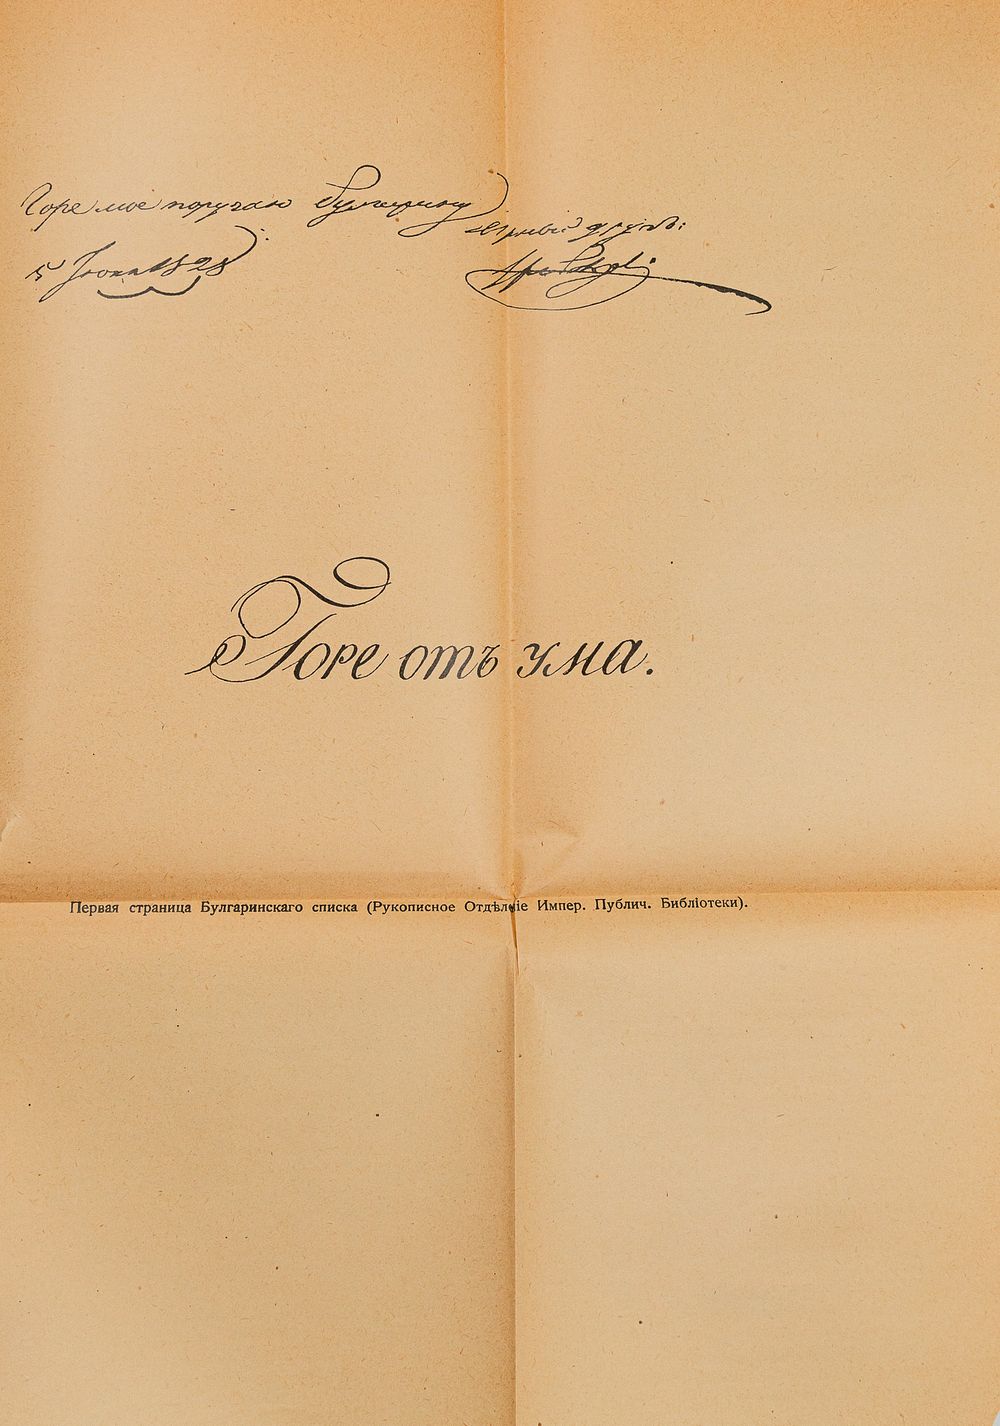 Горе мое поручаю Булгарину
вѣрный другъ:
5 Іюня 1828
Грибоѣдовъ
Горе отъ ума.
Первая страница Булгаринскаго списка (Рукописное Отдѣленіе Импер. Публич. Библіотеки).